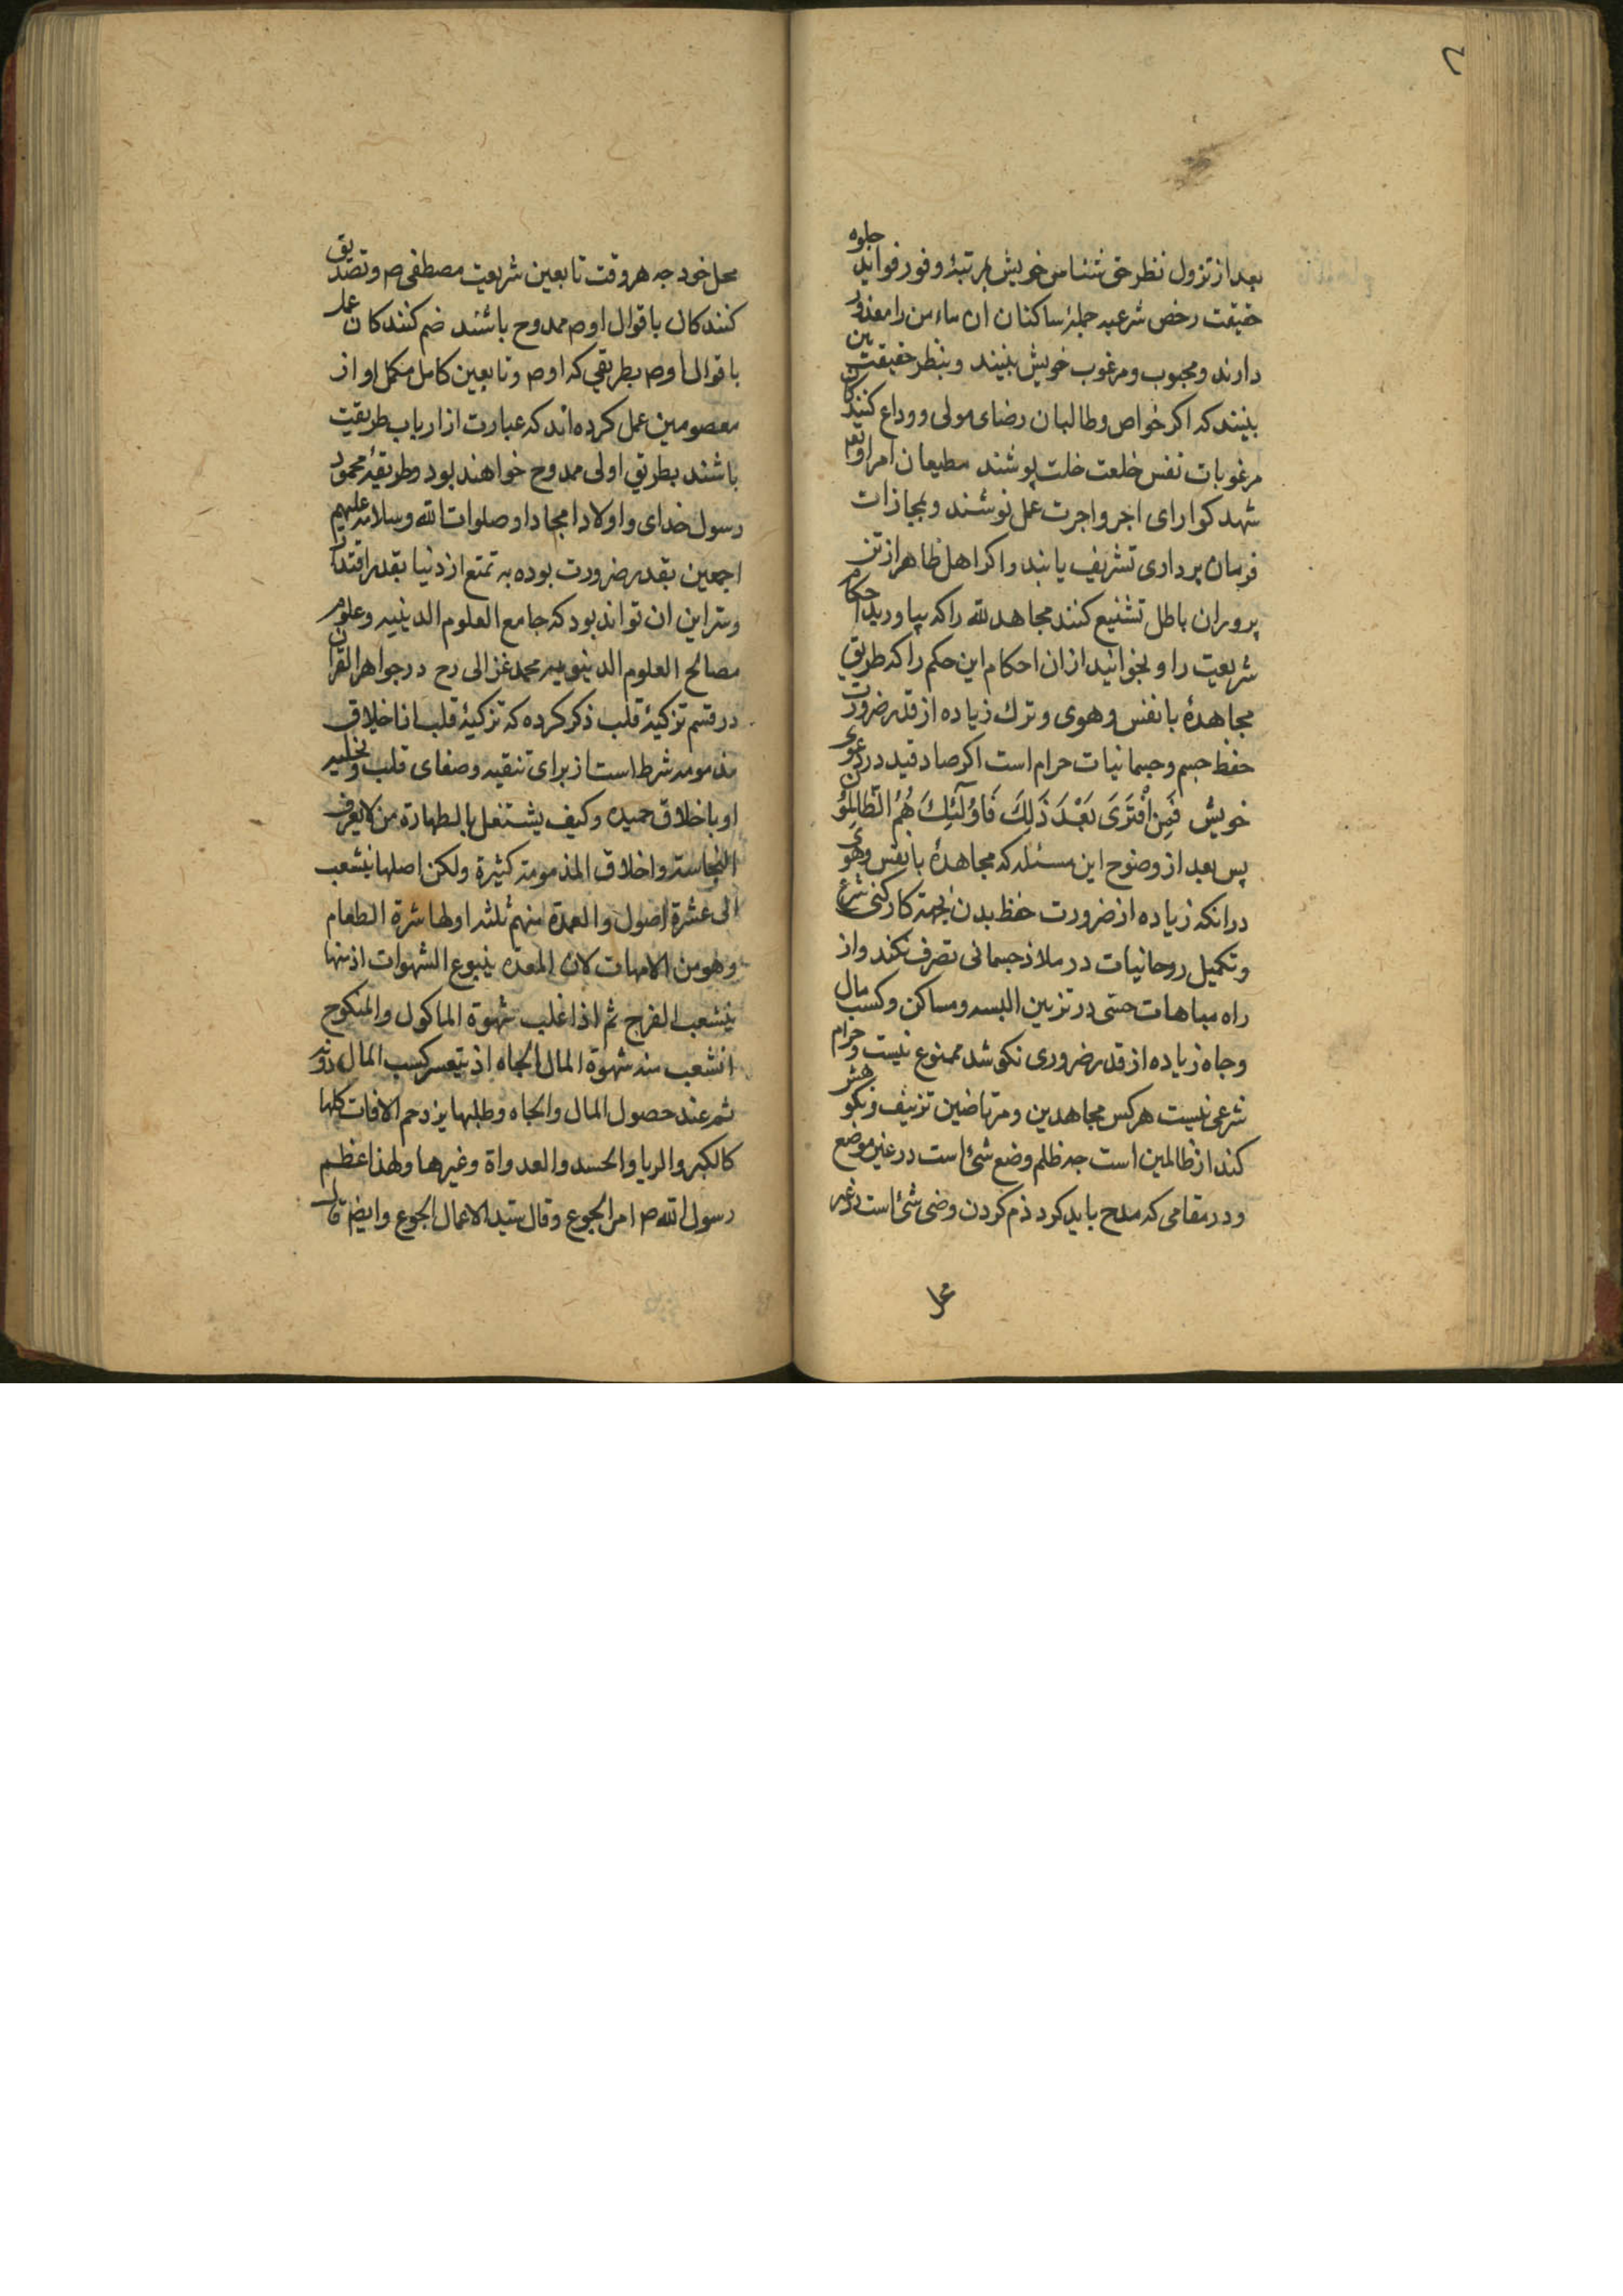 بعد از تزول نظر حق شناس خویش بمرتبهٔ وفور فواید جلوه
حقیقت رخص شرعیه جملهٔ ساکنان ان مامن را معذور
دارند و محبوب و مرغوب خویش بینند و بنظر حقیقت بین
بینند که اکر خواص و طالبان رضای مولی و وداع کنندکان
مرغوبات نفس خلعت خلت پوشند مطیعان امر او هم
شهد کوارای اجر و اجرت عمل نوشند و بمجازات
فرمان برداری تشریف یابند و اکر اهل ظاهر از تن
پروران باطل تشنیع کنند مجاهد لله را که بیاورید احکام
شریعت را و بخوانید از ان احکام این حکم را که طریق
مجاهدهٔ با نفس و هوی و ترك زیاده از قدر ضرورت
حفظ جسم و جسمانیات حرام است اکر صادقید در دعوی
خویش فَمَنِ افْتَرَى بَعْدَ ذَلِكَ فَاوُلَٓئِكَ هُمُ الظَّالِمُونَ
پس بعد از وضوح این مسئله که مجاهدهٔ با نفس و هوی
در انکه زیاده از ضرورت حفظ بدن بجهة کارکنی شرع
و تکمیل روحانیات در ملاذ جسمانی تصرف نکند و از
راه مباهات حتی در تزیین البسه و مساکن و کسب مال
و جاه زیاده از قدر ضروری نکوشد ممنوع نیست و حرام
شرعی نیست هر کس مجاهدین و مرتاضین تزییف و نکوهش
کند از ظالمین است چه ظلم وضع شئ است در غیر موضع
و در مقامی که مدح باید کرد ذم کردن وضی شئ است در غیر
محل
محل خود چه هر وقت تابعین شریعت مصطفی ص و تصدیق
کنندکان باقوال او ص ممدوح باشند ضم کنندکان عمل
باقوال او ص بطریقی که او ص و تابعین کامل مکمل او از
معصومین عمل کرده اند که عبارت از ارباب طریقیت
باشند بطریق اولی ممدوح خواهند بود و طریقهٔ محمود
رسول خدای و اولاد امجاد او صلوات الله و سلامه علیهم
اجمعین بقدر ضرورت بوده به تمتع از دنیا بقدر اقتدار
و سر این ان تواند بود که جامع العلوم الدینیه و علوم
مصالح العلوم الدنیویه محمد غزالی رح در جواهر القران
در قسم تزکیهٔ قلب ذکر کرده که تزکیهٔ قلب از اخلاق
مذمومه شرط است از برای تنقیه و صفای قلب و تخلیه
او باخلاق حمیده و کیف یشتغل بالطهارة من لا یعرف
النجاسة و اخلاق المذمومة کثیرة ولکن اصلها ینشعب
الی عشرة اصول و العمدة منهم ثلثه اولها شرة الطعام
و هو من الامهات لان المعده ینبوع الشهوات اذ منها
ینشعب الفرج ثم اذا غلب شهوة الماکول و المنکوح
انشعب منه شهوة المال الجاه اذ یتعسر کسب المال دونه
ثم عند حصول المال و الجاه و طلبها یزدحم الافات کلها
کالکبر و الریا و الحسد و العدواة و غیرها و لهذا عظم
رسول الله ص امر الجوع و قال سید الاعمال الجوع و ایضم قال